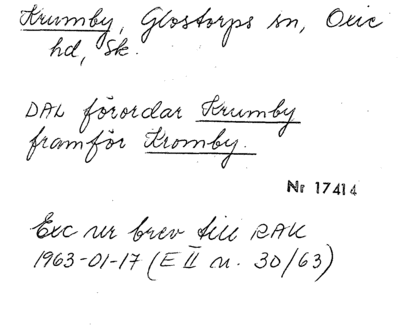 Krumby, Glostorps sn, Oxie
hd, Sk.
DAL förordar Krumby
framför Kromby.
Nr 17414
Exc ur brev till RAK
1963-01-17 (E II n. 30/63)